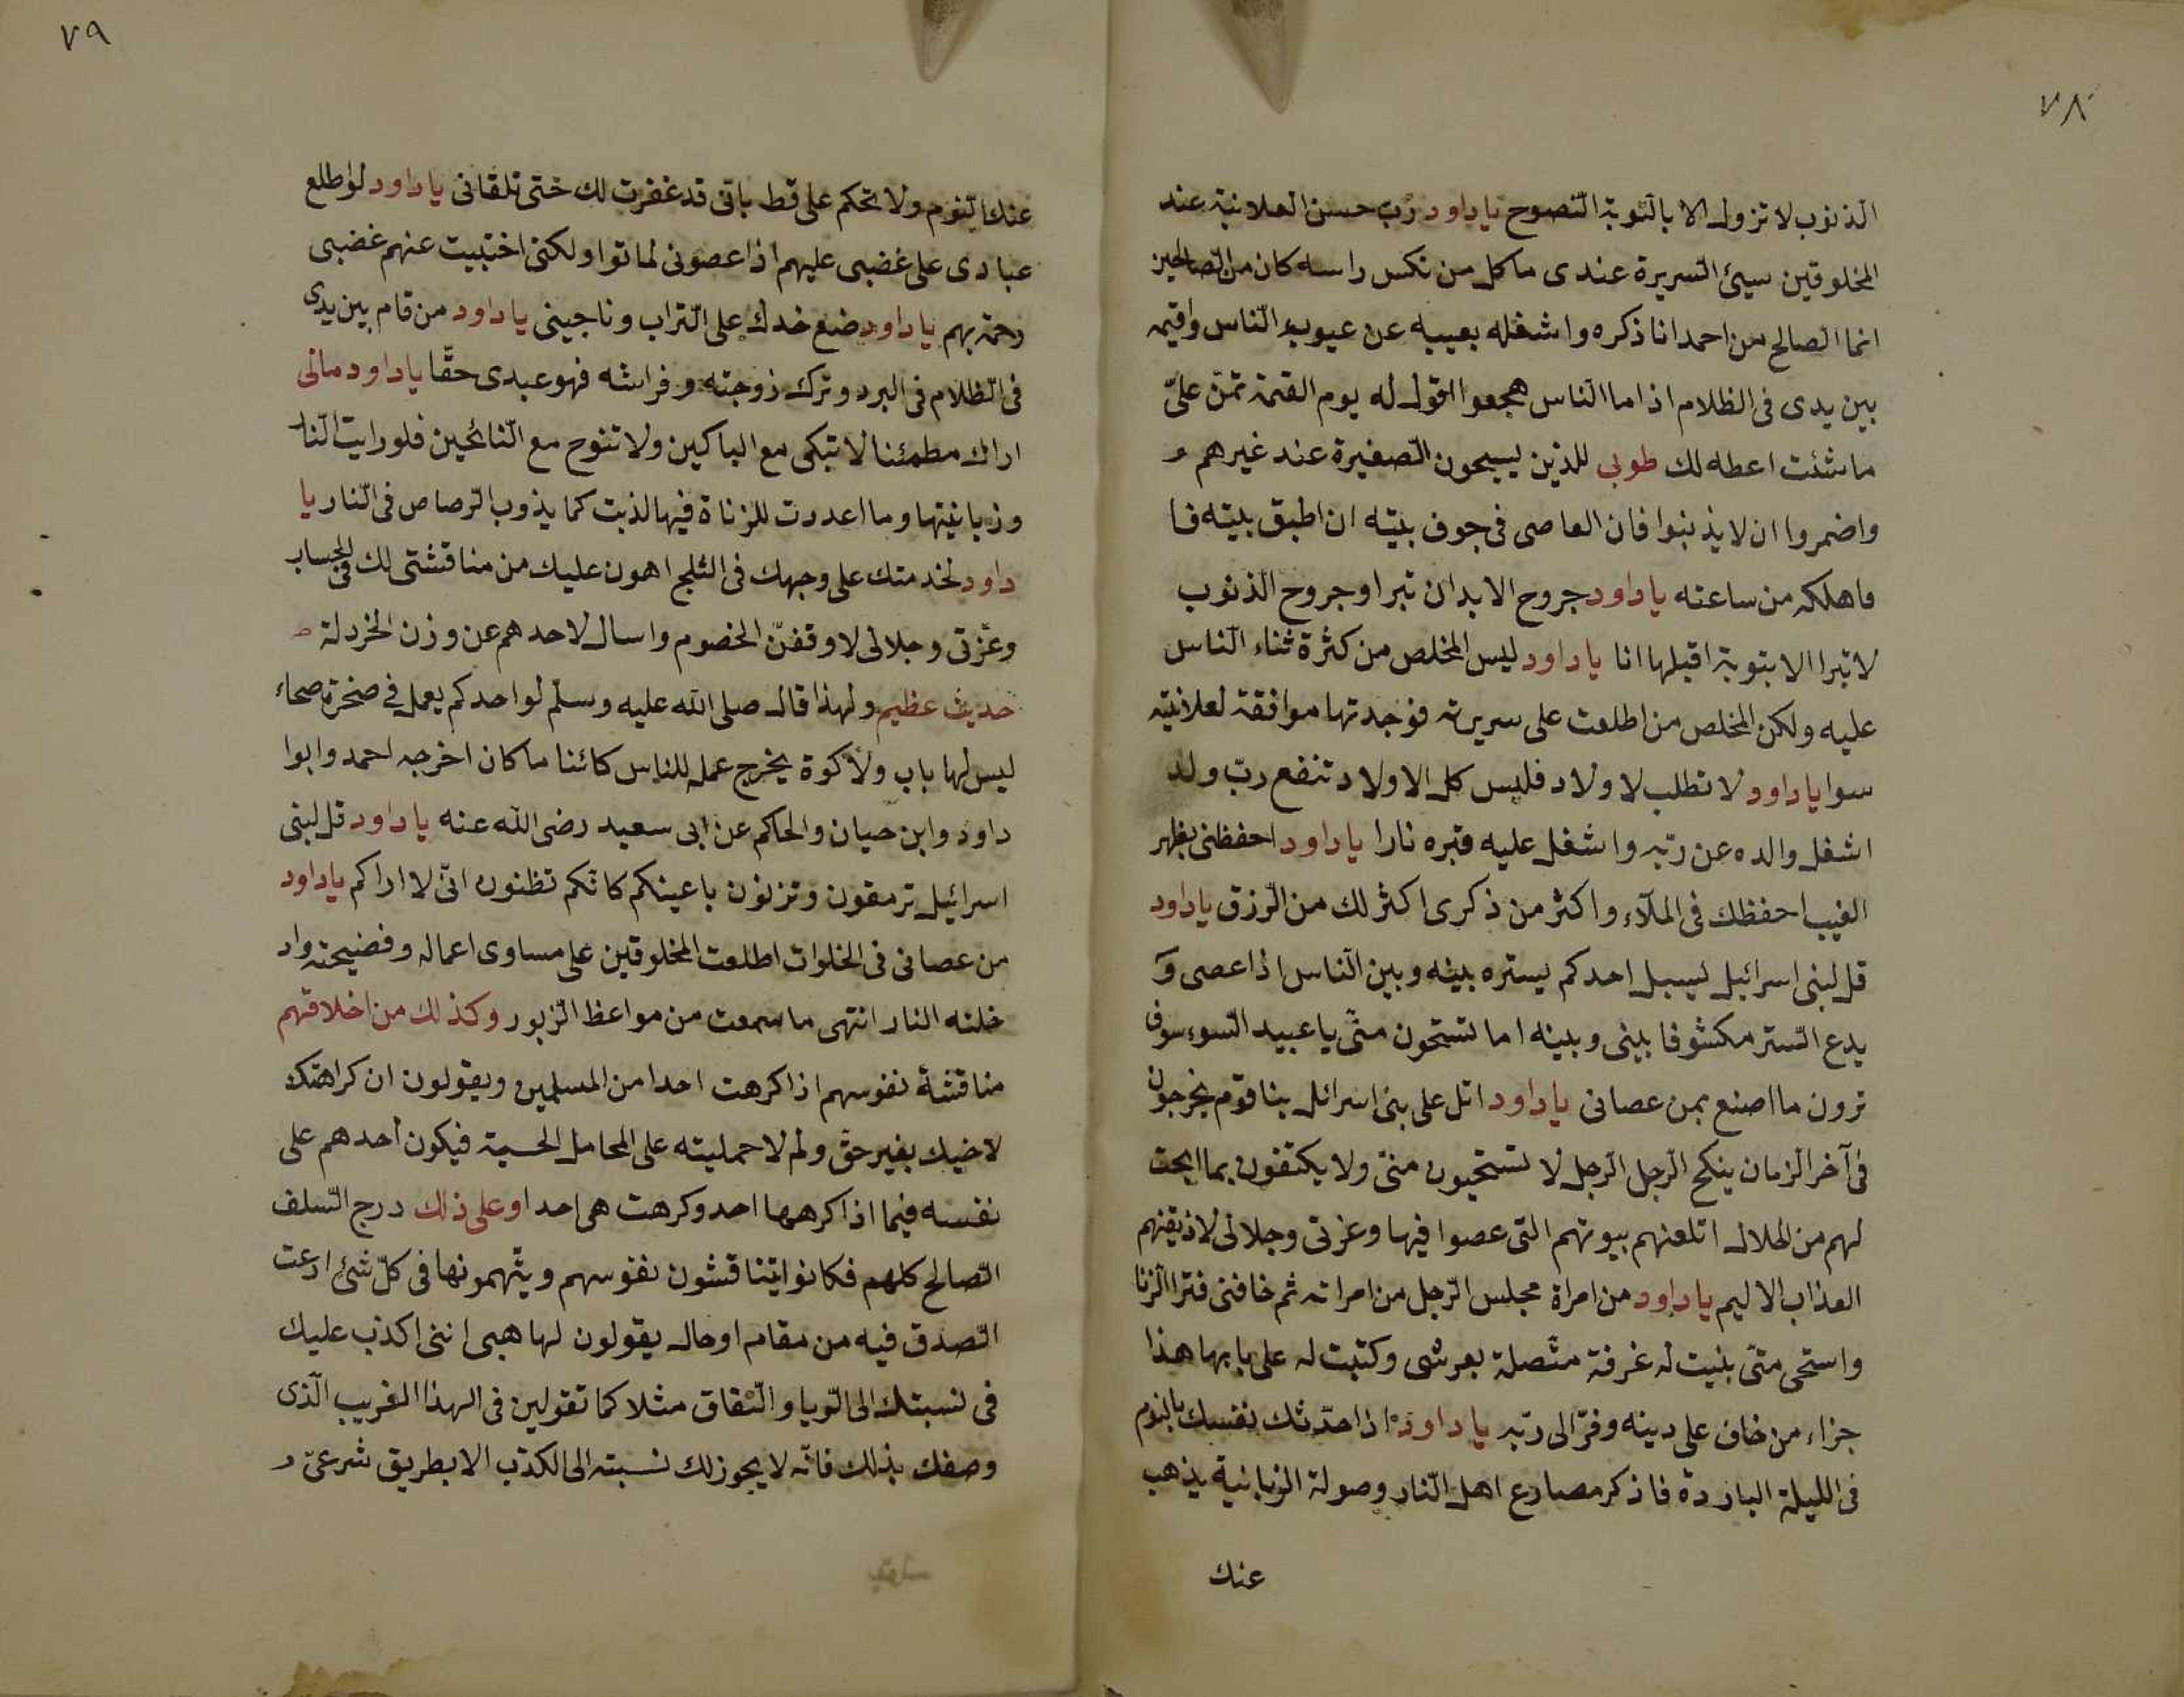 ٧٨
الذنوب لا تزول الا بالتوبة النصوح ياداود رب حسن العلانية عند
المخلوقين سيئ السريرة عندى ما كل من نكس راسه كان من الصالحين
انما الصالح من احمد انا ذكره واشغله بعيبه عن عيوب الناس واقيمه
بين يدى فى الظلام اذا ما الناس هجعوا اقول له يوم القيمة تمنّ علىّ
ما شئت اعطه لك طوبى للذين يسيحون الصغيرة عند غيرهم و
واضمروا ان لا يذنبوا فان العاصى فى جوف بيته ان اطبق بيته فا
فاهلكه من ساعته ياداود جروح الابدان تبرا وجروح الذنوب
لا تبرا الا بتوبة اقبلها انا ياداود ليس المخلص من كثرة ثناء الناس
عليه ولكن المخلص من اطلعت على سريرته فوجدتها موافقة لعلانيته
سوا ياداود لا تطلب لا ولاد فليس كل الاولاد تنفع ربّ ولد
اشغل والده عن ربّه واشغل عليه قبره نارا ياداود احفظنى بظهر
الغيب احفظك فى الملآء واكثر من ذكرى اكثر لك من الرزق ياداود
قل لبنى اسرائيل ليسبل احدكم يستره بينه وبين الناس اذا عصى و
يدع الستر مكشوفا بينى وبينه اما تستحون منّى يا عبيد السوء سوف
ترون ما اصنع بمن عصانى ياداود اتل على بنى اسرائل بنا قوم يخرجون
فى آخر الزمان ينكح الرجل الرجل لا تستحيون منىّ ولا يكتفون بما ابحت
لهم من الحلال اتلعنهم بيوتهم التى عصوا فيها وعزتى وجلالى لاذيقنهم
العذاب الاليم ياداود من امراة مجلس الرجل من امراته ثم خافنى فترا الزنا
واستحى متىّ بنيت له غرفة متّصلة بعرشى وكتبت له على بابها هذا
جزاء من خاف على دينه وفرّ الى ربّه ياداود اذا حدّثك نفسك بالنوم
فى الليلة الباردة فاذكر مصارع اهل النار وصولة الزبانية يذهب
عنك
٧٩
عنك النوم ولا تحكم على قط باتى قد غفرت لك حتى تلقانى ياداود لو اطلع
عبادى على غضبى عليهم اذا عصونى لماتوا ولكنى اختبيت عنهم غضبى
رحمة بهم ياداود ضع خدك على التراب وناجينى ياداود من قام بين يدى
فى الظلام فى البرد وترك زوجته وفراشه فهو عبدى حقّا ياداود مالى
اراك مطمئنا لا تبكى مع الباكين ولا تنوح مع النائحين فلو رايت النار
وزبانيتها وما اعددت للزناة فيها لذبت كما يذوب الرصاص فى النار يا
داود لخدمتك على وجهك فى الثلج اهون عليك من مناقشتى لك فى الحساب
وعزتى وجلالى لاوقفنّ الخصوم واسال لاحدهم عن وزن الخردلة
حديث عظيم ولهذا قال صلى الله عليه وسلم لو احدكم يعمل فى صخرة صماء
ليس لها باب ولا كوة يخرج عمله للناس كائنا ما كان اخرجه احمد وابوا
داود وابن حيان والحاكم عن ابى سعيد رضى الله عنه ياداود قل لبنى
اسرائيل ترمقون وتزنون باعينكم كانّكم تظنون انّى لا اراكم ياداود
من عصانى فى الخلوات اطلعت المخلوقين على مساوى اعماله وفضيحته واد
خلته النار انتهى ما سمعت من مواعظ الزبور وكذلك من اخلاقهم
مناقشة نفوسهم اذا كرهت احدا من المسلمين ويقولون ان كراهتك
لاخيك بغير حق ولم لا حمليته على المحامل الحسنة فيكون أحدهم على
نفسه فيما اذا كرهها احد وكرهت هى احدا وعلى ذلك درج السلف
الصالح كلهم فكانوا يتناقشون نفوسهم ويتّهمونها فى كلّ شئ ادعت
الصدق فيه من مقام او حال يقولون لها هبى اننى اكذب عليك
فى نسبتك الى الريا والنفاق مثلا كما تقولين فى الهذا الغريب الّذى
وصفك بذلك فانّه لا يجوز لك نسبته الى الكذب الا بطريق شرعىّ و